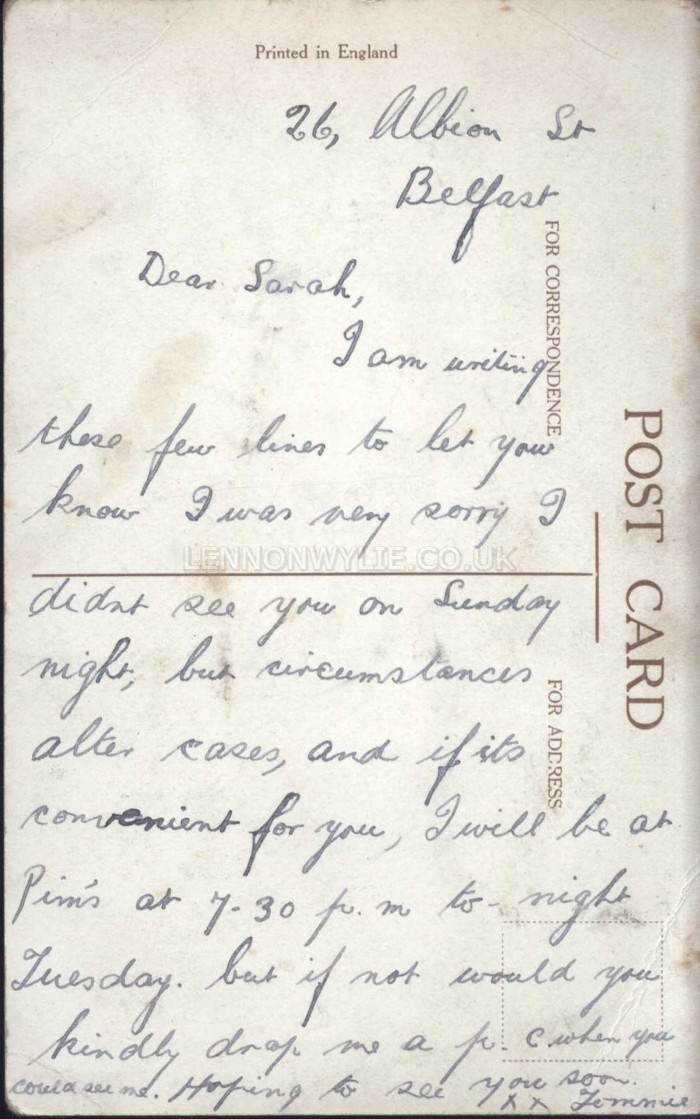 Printed in England
26, Albion St
Belfast
Dear Sarah,
I am writing
these few lines to let you
know I was very sorry I
didnt see you on Sunday
night, but circumstances
alter cases, and if its
convenient for you, I will be at
Pim's at 7-30 p.m to-night
Tuesday. but if not would you
kindly drop me a p.c. when you
could see me. Hoping to see you soon.
x x Tommie
FOR CORRESPONDENCE
POST CARD
FOR ADDRESS
LENNONWYLIE.CO.UK